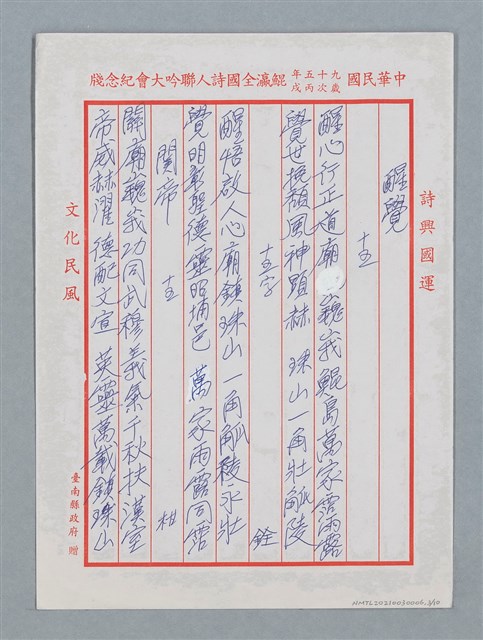 中華民國九十五年歲次丙戌鯤瀛全國詩人聯吟大會紀念牋
詩興國運
醒覺
十五
醒心行正道廟巍峩鯤島萬家霑雨露
覺世挽頹風神顯赫珠山一角壯觚陵
十五字 銓
醒悟啟人心廟鎮珠山一角觚稜永壯
覺明彰聖德靈昭埔邑萬家雨露同霑
関帝 十五 柑
關廟巍峩功同武穆義氣千秋扶漢室
帝威赫濯德配文宣英靈萬載鎮珠山
文化民風
臺南縣政府 贈
NMTL20210030006_3/10